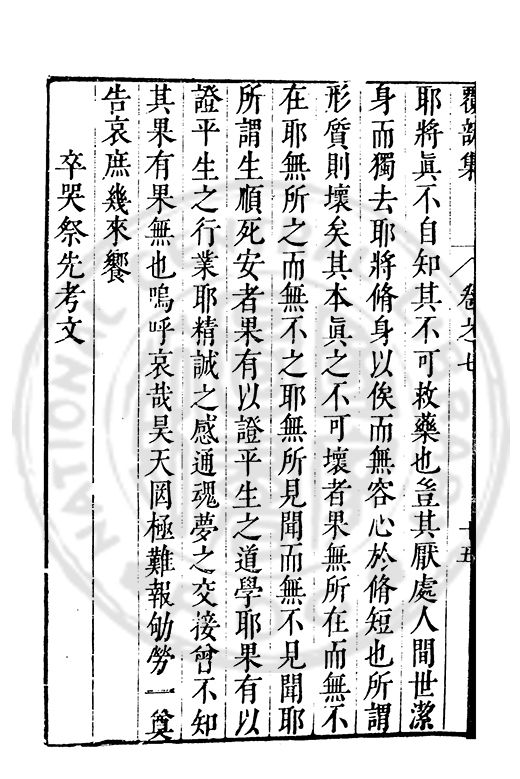 覆瓿集 卷之七 十五
耶將眞不自知其不可救藥也豈其厭處人間世潔
身而獨去耶將脩身以俟而無容心於脩短也所謂
形質則壞矣其本眞之不可壞者果無所在而無不
在耶無所之而無不之耶無所見聞而無不見聞耶
所謂生順死安者果有以證平生之道學耶果有以
證平生之行業耶精誠之感通魂夢之交接曾不知
其果有果無也嗚呼哀哉昊天罔極難報劬勞一奠
告哀庶幾來饗
卒哭祭先考文